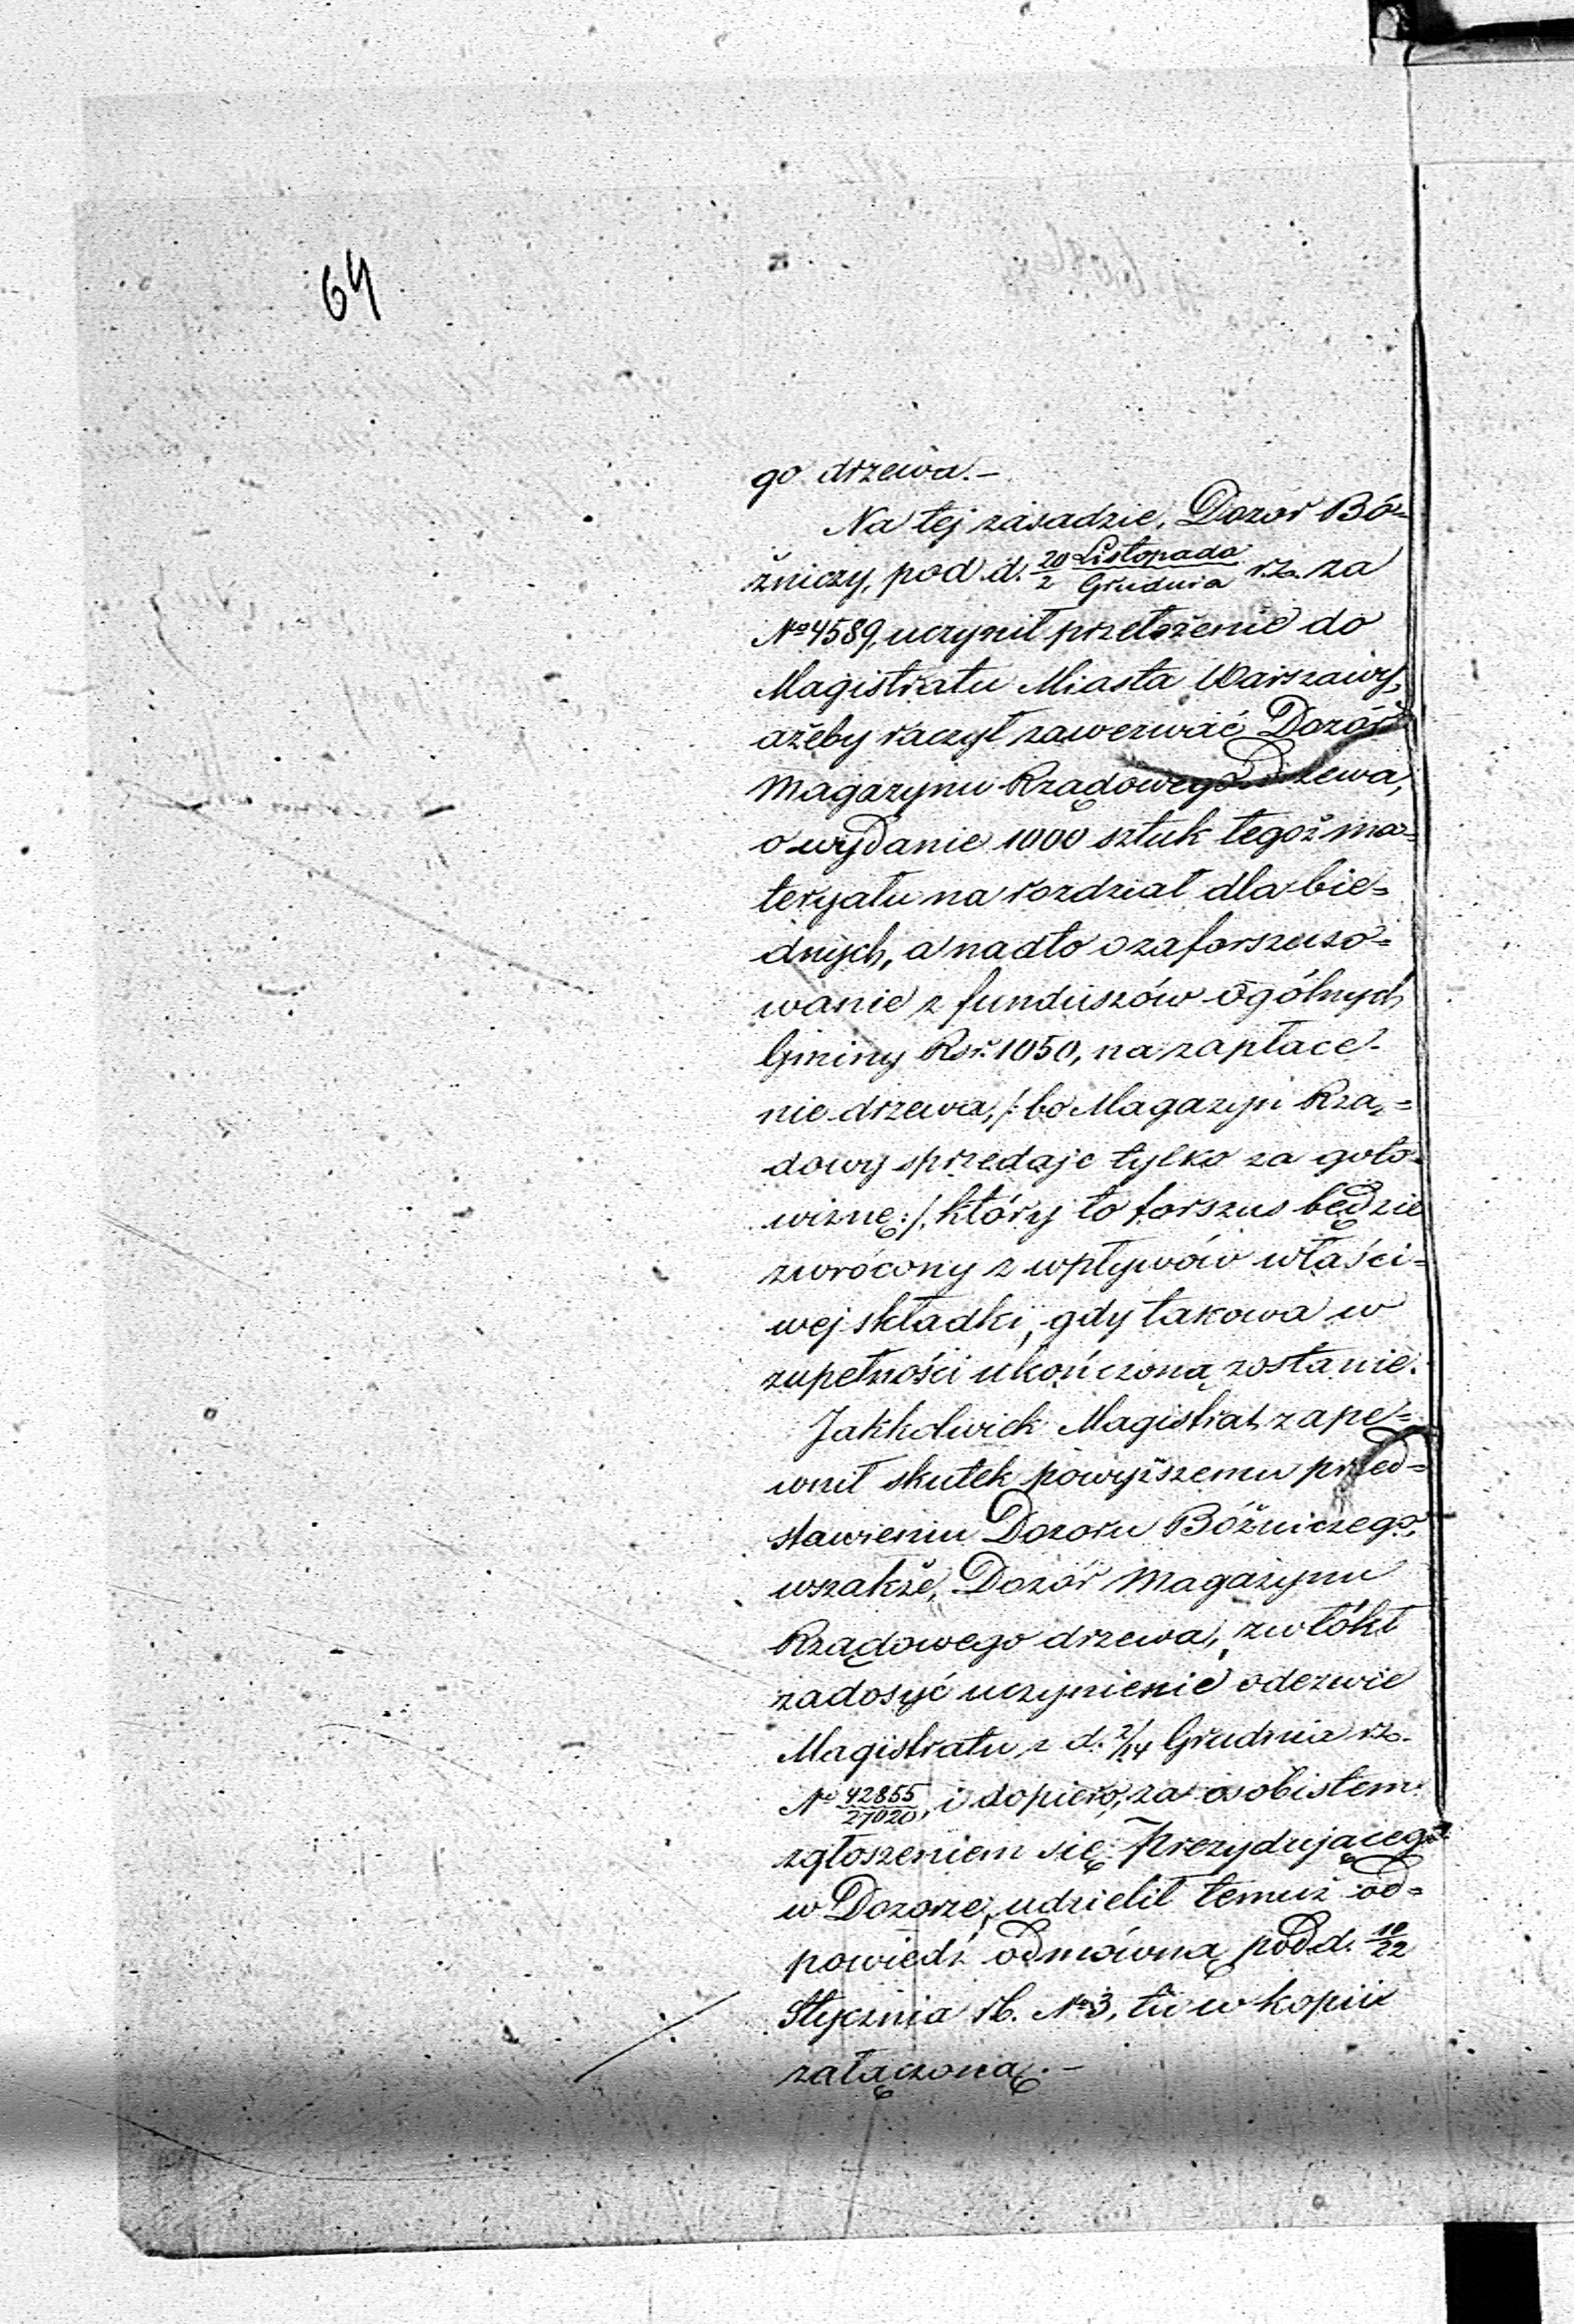 64
go drzewa.—
Na tej zasadzie, Dozór Bó=
żniczy, pod d. 20/2 Listopada/Grudnia r.z. za
No 4589, uczynił przełożenie do
Magistratu Miasta Warszawy,
ażeby raczył zawezwać Dozór
Magazynu Rządowego Drzewa,
o wydanie 1000 sztuk tegoż ma=
teryału na rozdział dla bie=
dnych, a nadto o zaforszuso=
wanie z funduszów ogólnych
Gminy Rsr. 1050, na zapłace-
nie drzewa, /: bo Magazyn Rzą=
dowy sprzedaje tylko za goto-
wiznę :/, który to forszus będzie
zwrócony z wpływów właści=
wej składki, gdy takowa w
zupełności ukończoną zostanie.
Jakkolwiek Magistrat zape=
wnił skutek powyższemu przed=
stawieniu Dozoru Bóżniczego,
wszakże, Dozór Magazynu
Rządowego drzewa, zwlókł
zadosyć uczynienie odezwie
Magistratu z d. 2/14 Grudnia r.z.
No 42855/27020, i dopiero, za osobistem
zgłoszeniem się Prezydującego
w Dozorze, udzielił temuż od=
powiedź odmówną pod d. 10/22
Stycznia r.b. No 3, tu w kopii
załączoną.—